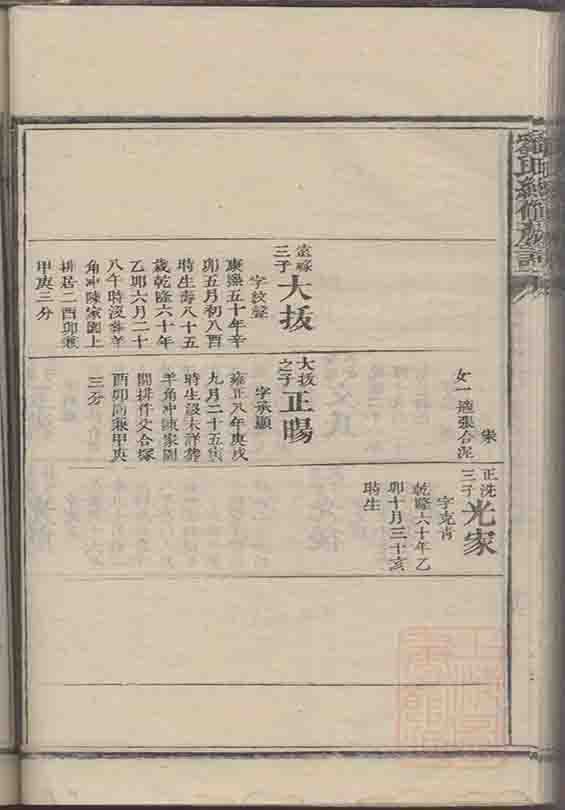 氏續修族譜
女一適張合泥
宋
正洗
三子
光家
字克肯
乾隆六十年乙
卯十月三十亥
時生
三子
大抜
字紋聲
康熙五十年辛
卯五月初八酉
時生壽八十五
歲乾隆六十年
乙卯六月二十
八午時沒葬羊
角冲陳家園上
排居二酉卯兼
甲庚三分
大抜
之子
正暘
字承顯
雍正八年庚戌
九月二十五亥
時生沒未詳葬
羊角冲陳家園
開排件父合塚
酉卯向兼甲庚
三分